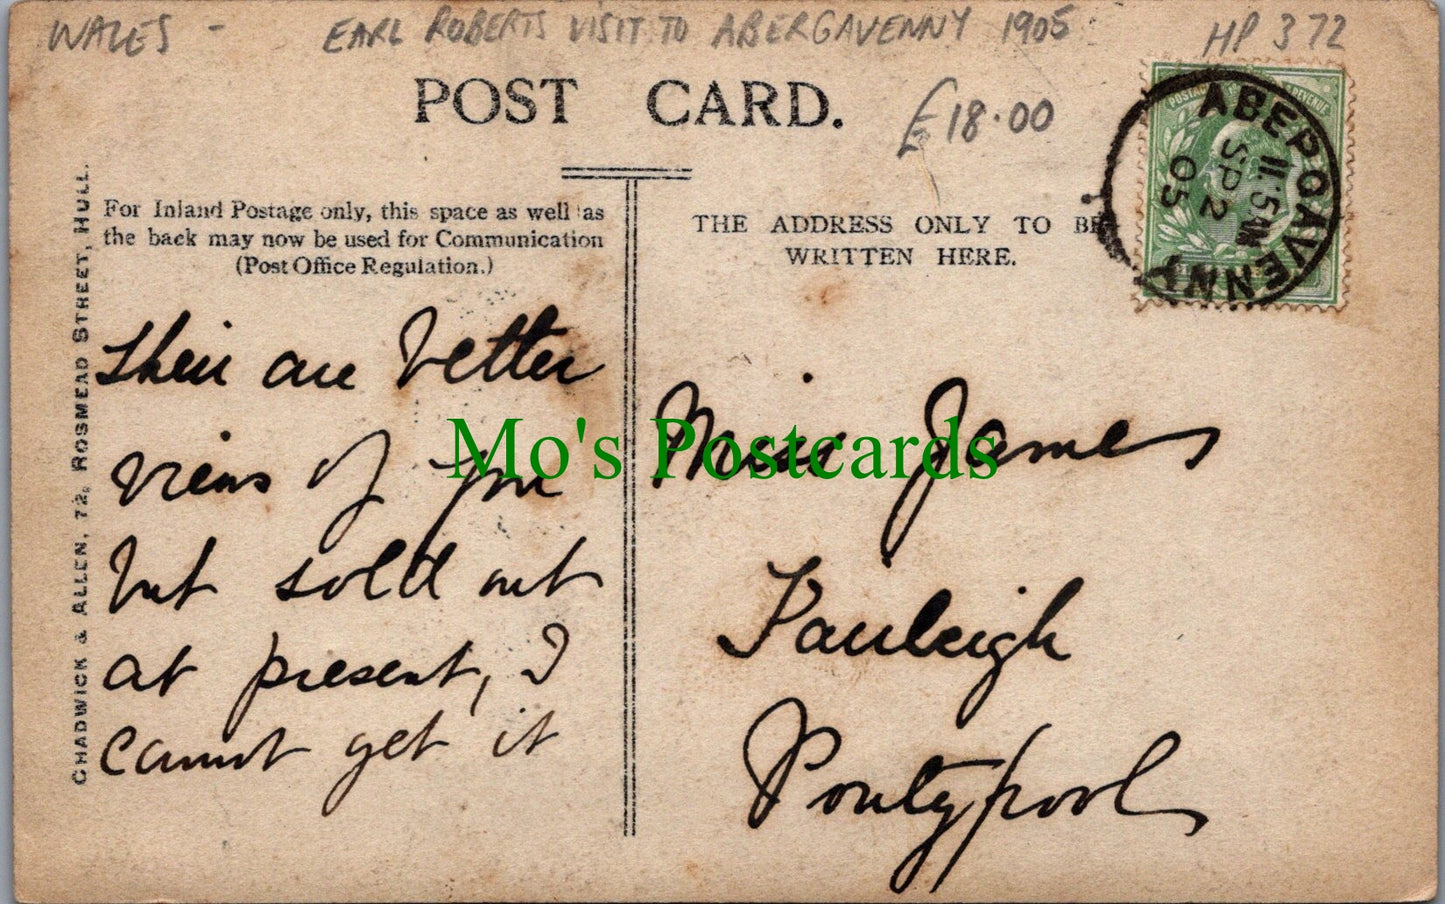 WALES - EARL ROBERTS VISIT TO ABERGAVENNY 1905 HP 372
POST CARD.
£18.00
ABERGAVENNY
11.15AM
SP 2
05
POSTAGE & REVENUE
For Inland Postage only, this space as well as
the back may now be used for Communication
(Post Office Regulation.)
THE ADDRESS ONLY TO BE
WRITTEN HERE.
CHADWICK & ALLEN, 72, ROSMEAD STREET, HULL.
Their are better
views of you
but sold out
at present, I
cannot get it
Miss James
Fairleigh
Pontypool
Mo's Postcards